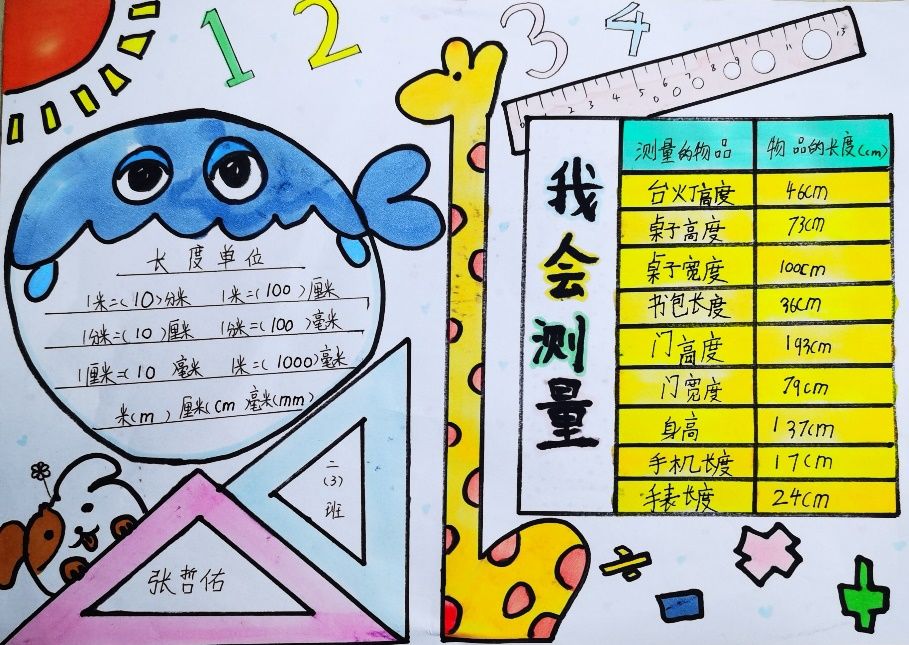 1 2 3 4
长度单位
1米=(10)分米 1米=(100)厘米
1分米=(10)厘米 1分米=(100)毫米
1厘米=(10)毫米 1米=(1000)毫米
米(m) 厘米(cm) 毫米(mm)
二(3)班
张哲佑
我会测量
测量的物品 物品的长度(cm)
台火丁高度 46cm
桌子高度 73cm
桌子宽度 100cm
书包长度 36cm
门高度 193cm
门宽度 79cm
身高 137cm
手机长度 17cm
手表长度 24cm